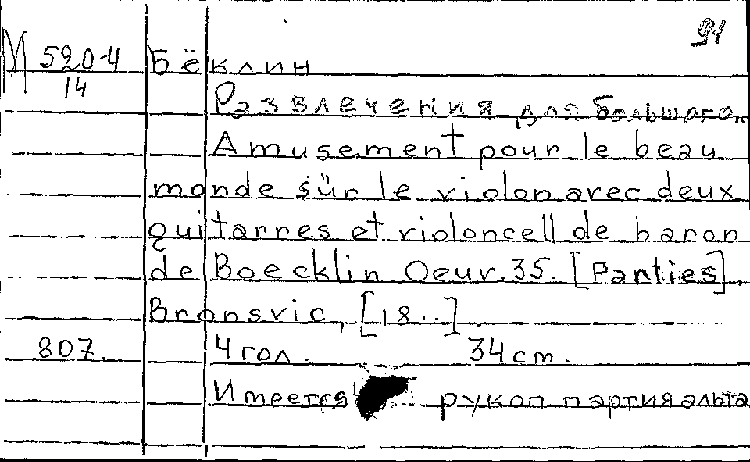 94
М 520-4 Бёклин
14
Развлечения для большого
Amusement pour le beau
monde sûr le violon avec deux
guitarres et violoncell de baron
de Boecklin Oeur. 35. [Parties]
Bronsvic, [18..]
807. 4 гол. 34 cm.
Имеется рукоп партия альта